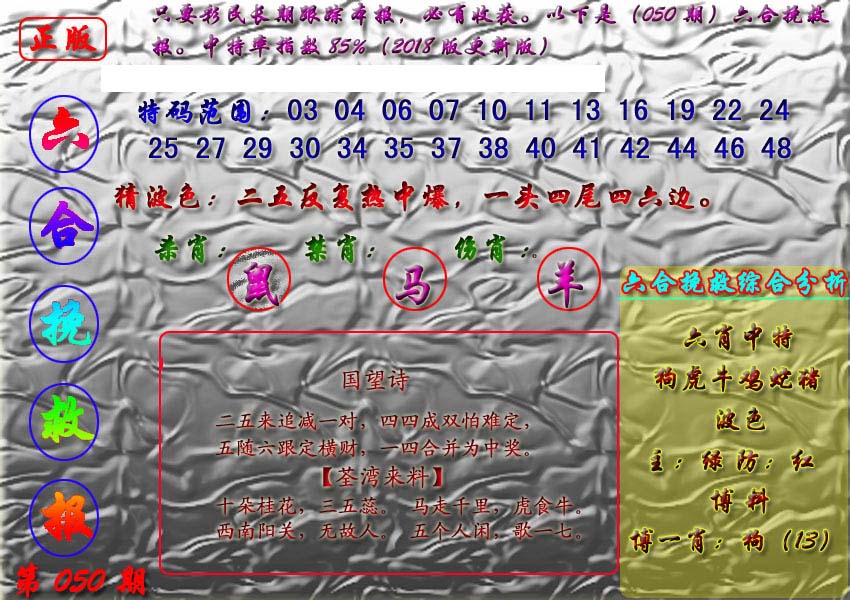 正版
只要彩民长期跟踪本报，必有收获。以下是（050期）六合挽救
报。中特率指数85%（2018版更新版）
六合挽救报
第050期
特码范围：03 04 06 07 10 11 13 16 19 22 24
25 27 29 30 34 35 37 38 40 41 42 44 46 48
猜波色：二五反复热中爆，一头四尾四六边。
杀肖：鼠 禁肖：马 伤肖：羊。
国望诗
二五来追减一对，四四成双怕难定，
五随六跟定横财，一四合并为中奖。
【荃湾来料】
十朵桂花，三五蕊。 马走千里，虎食牛。
西南阳关，无故人。 五个人闲，歌一七。
六合挽救综合分析
六肖中特
狗虎牛鸡蛇猪
波色
主：绿防：红
博料
博一肖：狗（13）